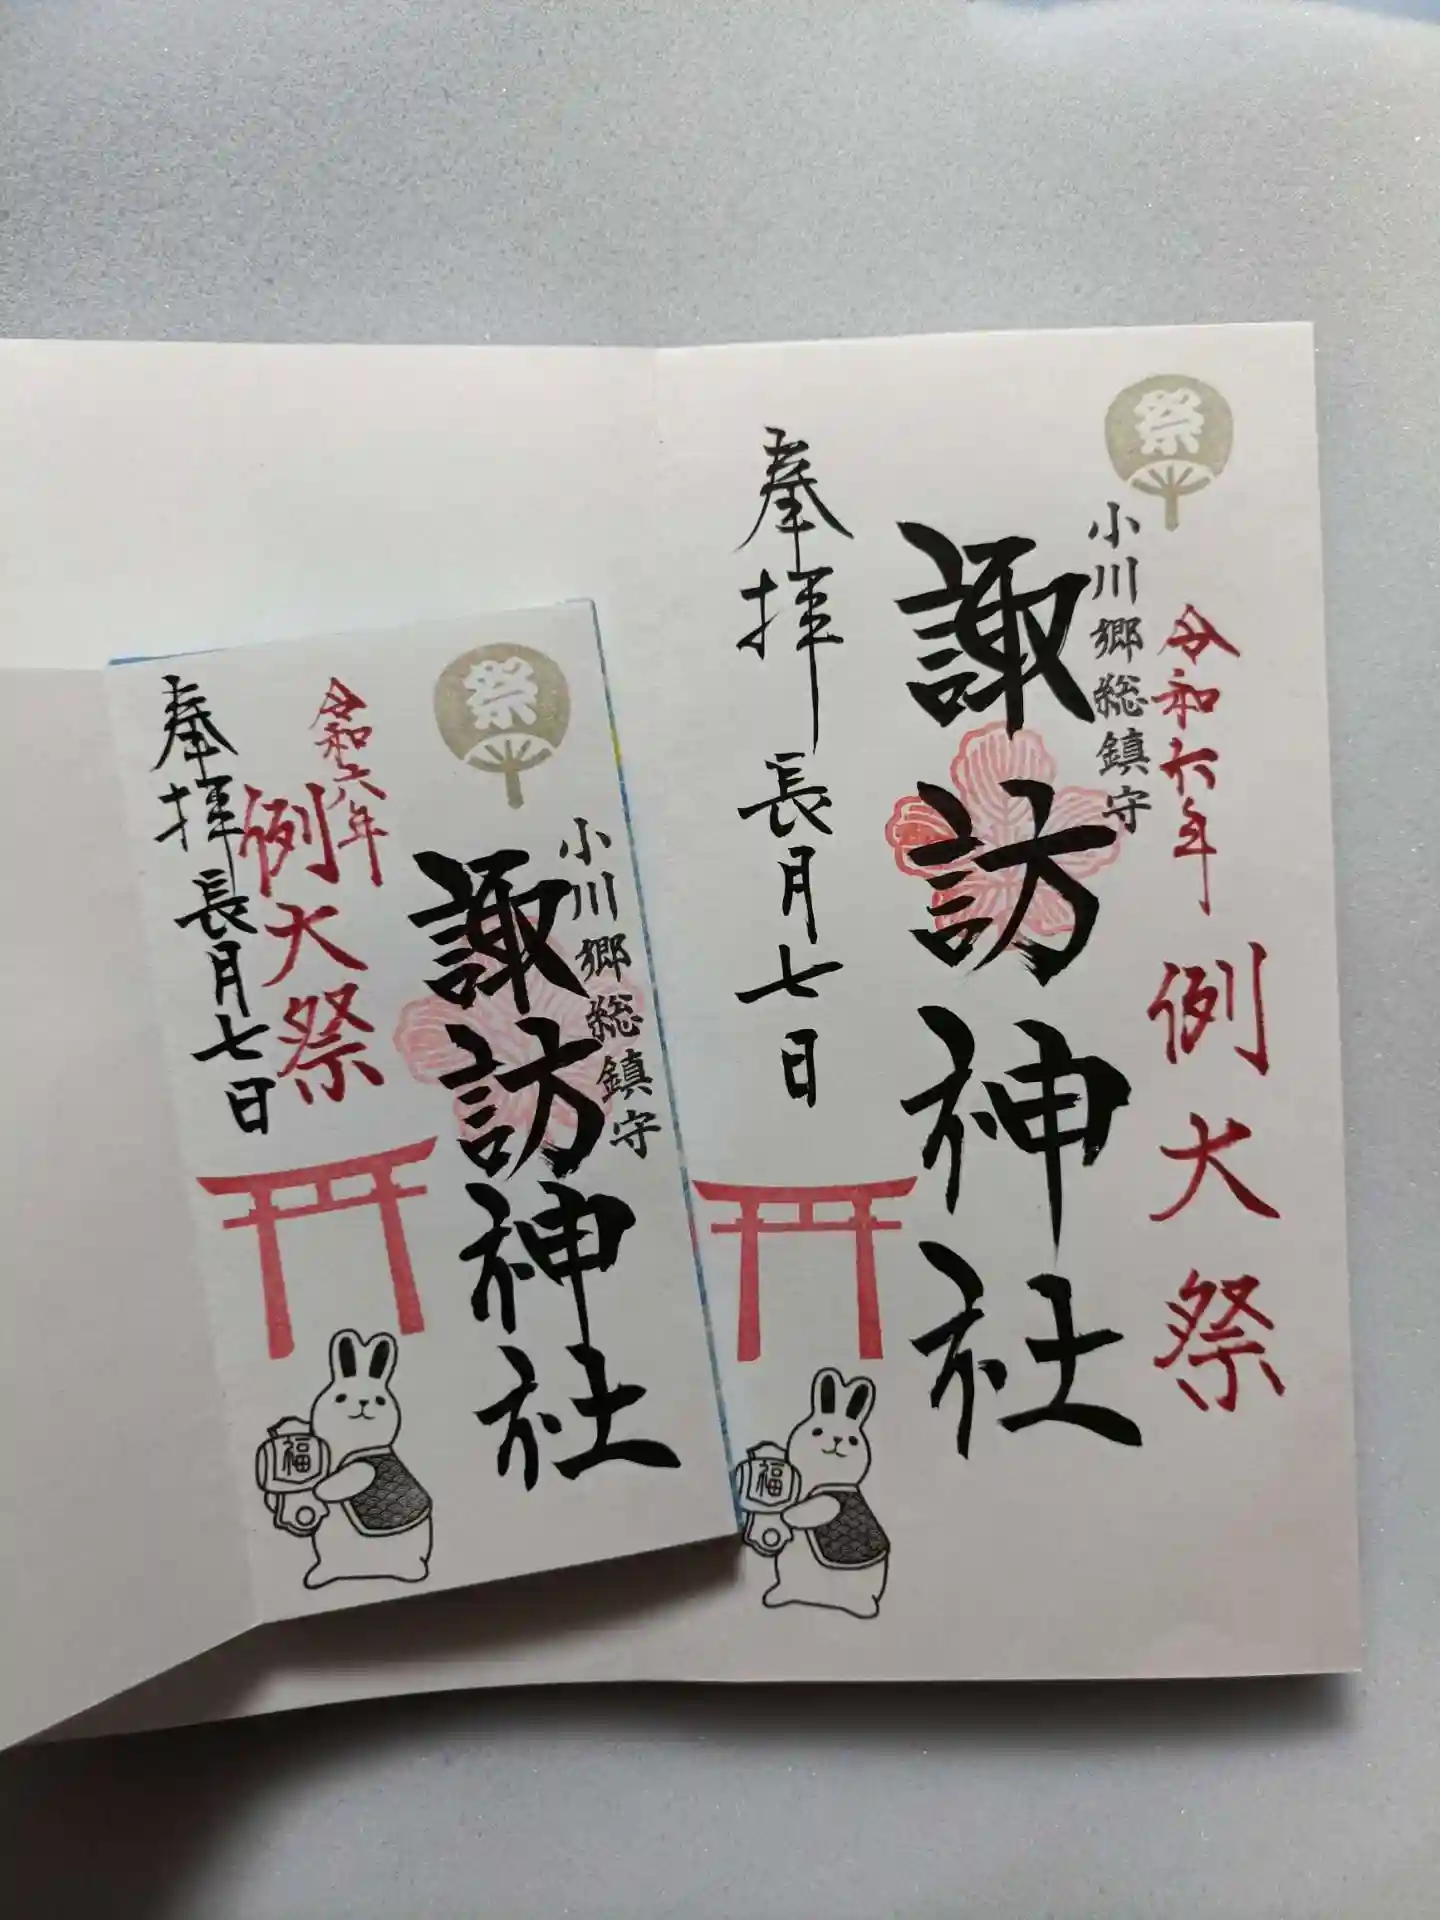 祭
令和六年 例大祭
小川郷総鎮守
諏訪神社
奉拝 長月七日
福
祭
小川郷総鎮守
諏訪神社
令和六年
例大祭
奉拝 長月七日
福